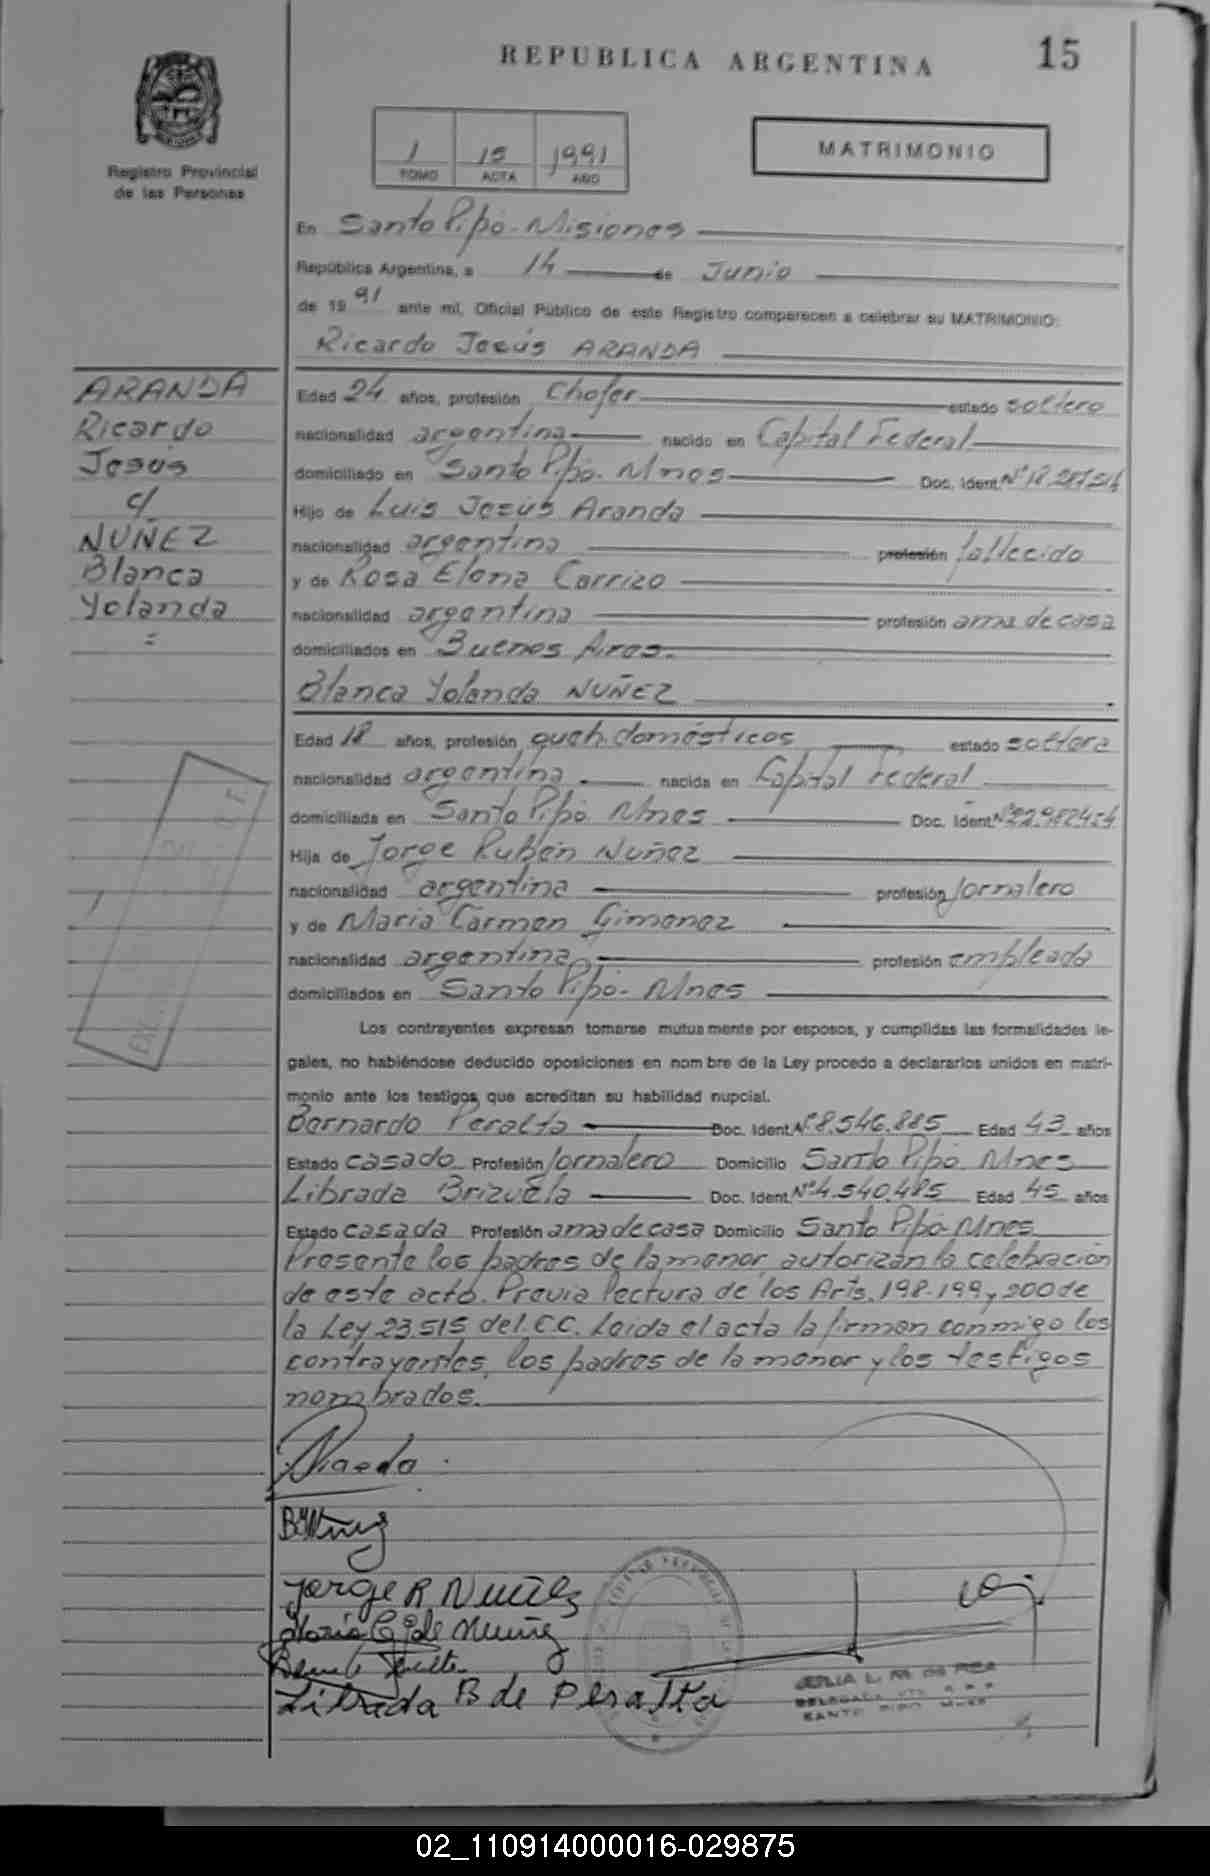 REPUBLICA ARGENTINA
15
Registro Provincial
de las Personas
1 15 1991
TOMO ACTA AÑO
MATRIMONIO
En Santo Pipó - Misiones
República Argentina, a 14 de Junio
de 19 91 ante mi, Oficial Público de este Registro comparecen a celebrar su MATRIMONIO:
Ricardo Jesús ARANDA
ARANDA
Ricardo
Jesús
c/
NUÑEZ
Blanca
Yolanda
=
Edad 24 años, profesión Chofer estado soltero
nacionalidad argentina nacido en Capital Federal
domiciliado en Santo Pipó - Mnes Doc. Ident. Nº
Hijo de Luis Jesús Aranda
nacionalidad argentina profesión fallecido
y de Rosa Elena Carrizo
nacionalidad argentina profesión ama de casa
domiciliados en Buenos Aires.
Blanca Yolanda NUÑEZ
Edad 18 años, profesión queh. domésticos estado soltera
nacionalidad argentina nacida en Capital Federal
domiciliada en Santo Pipó Mnes Doc. Ident. Nº
Hija de Jorge Rubén Nuñez
nacionalidad argentina profesión Jornalero
y de María Carmen Gimenez
nacionalidad argentina profesión empleada
domiciliados en Santo Pipó - Mnes
Los contrayentes expresan tomarse mutuamente por esposos, y cumplidas las formalidades le-
gales, no habiéndose deducido oposiciones en nombre de la Ley procedo a declararlos unidos en matri-
monio ante los testigos que acreditan su habilidad nupcial.
Bernardo Peralta Doc. Ident. Nº 8.546.885 Edad 43 años
Estado casado Profesión Jornalero Domicilio Santo Pipó Mnes
Librada Brizuela Doc. Ident. Nº 4.540.485 Edad 45 años
Estado casada Profesión ama de casa Domicilio Santo Pipó - Mnes
Presente los padres de la menor, autorizan la celebración
de este acto. Previa lectura de los Arts. 198-199 y 200 de
la Ley 23.515 del C.C. Leida el acta la firman conmigo los
contrayentes, los padres de la menor y los testigos
nombrados.
Jorge R Nuñez
María G. de Nuñez
Librada B de Peralta
SANTO PIPO MNES
02_110914000016-029875